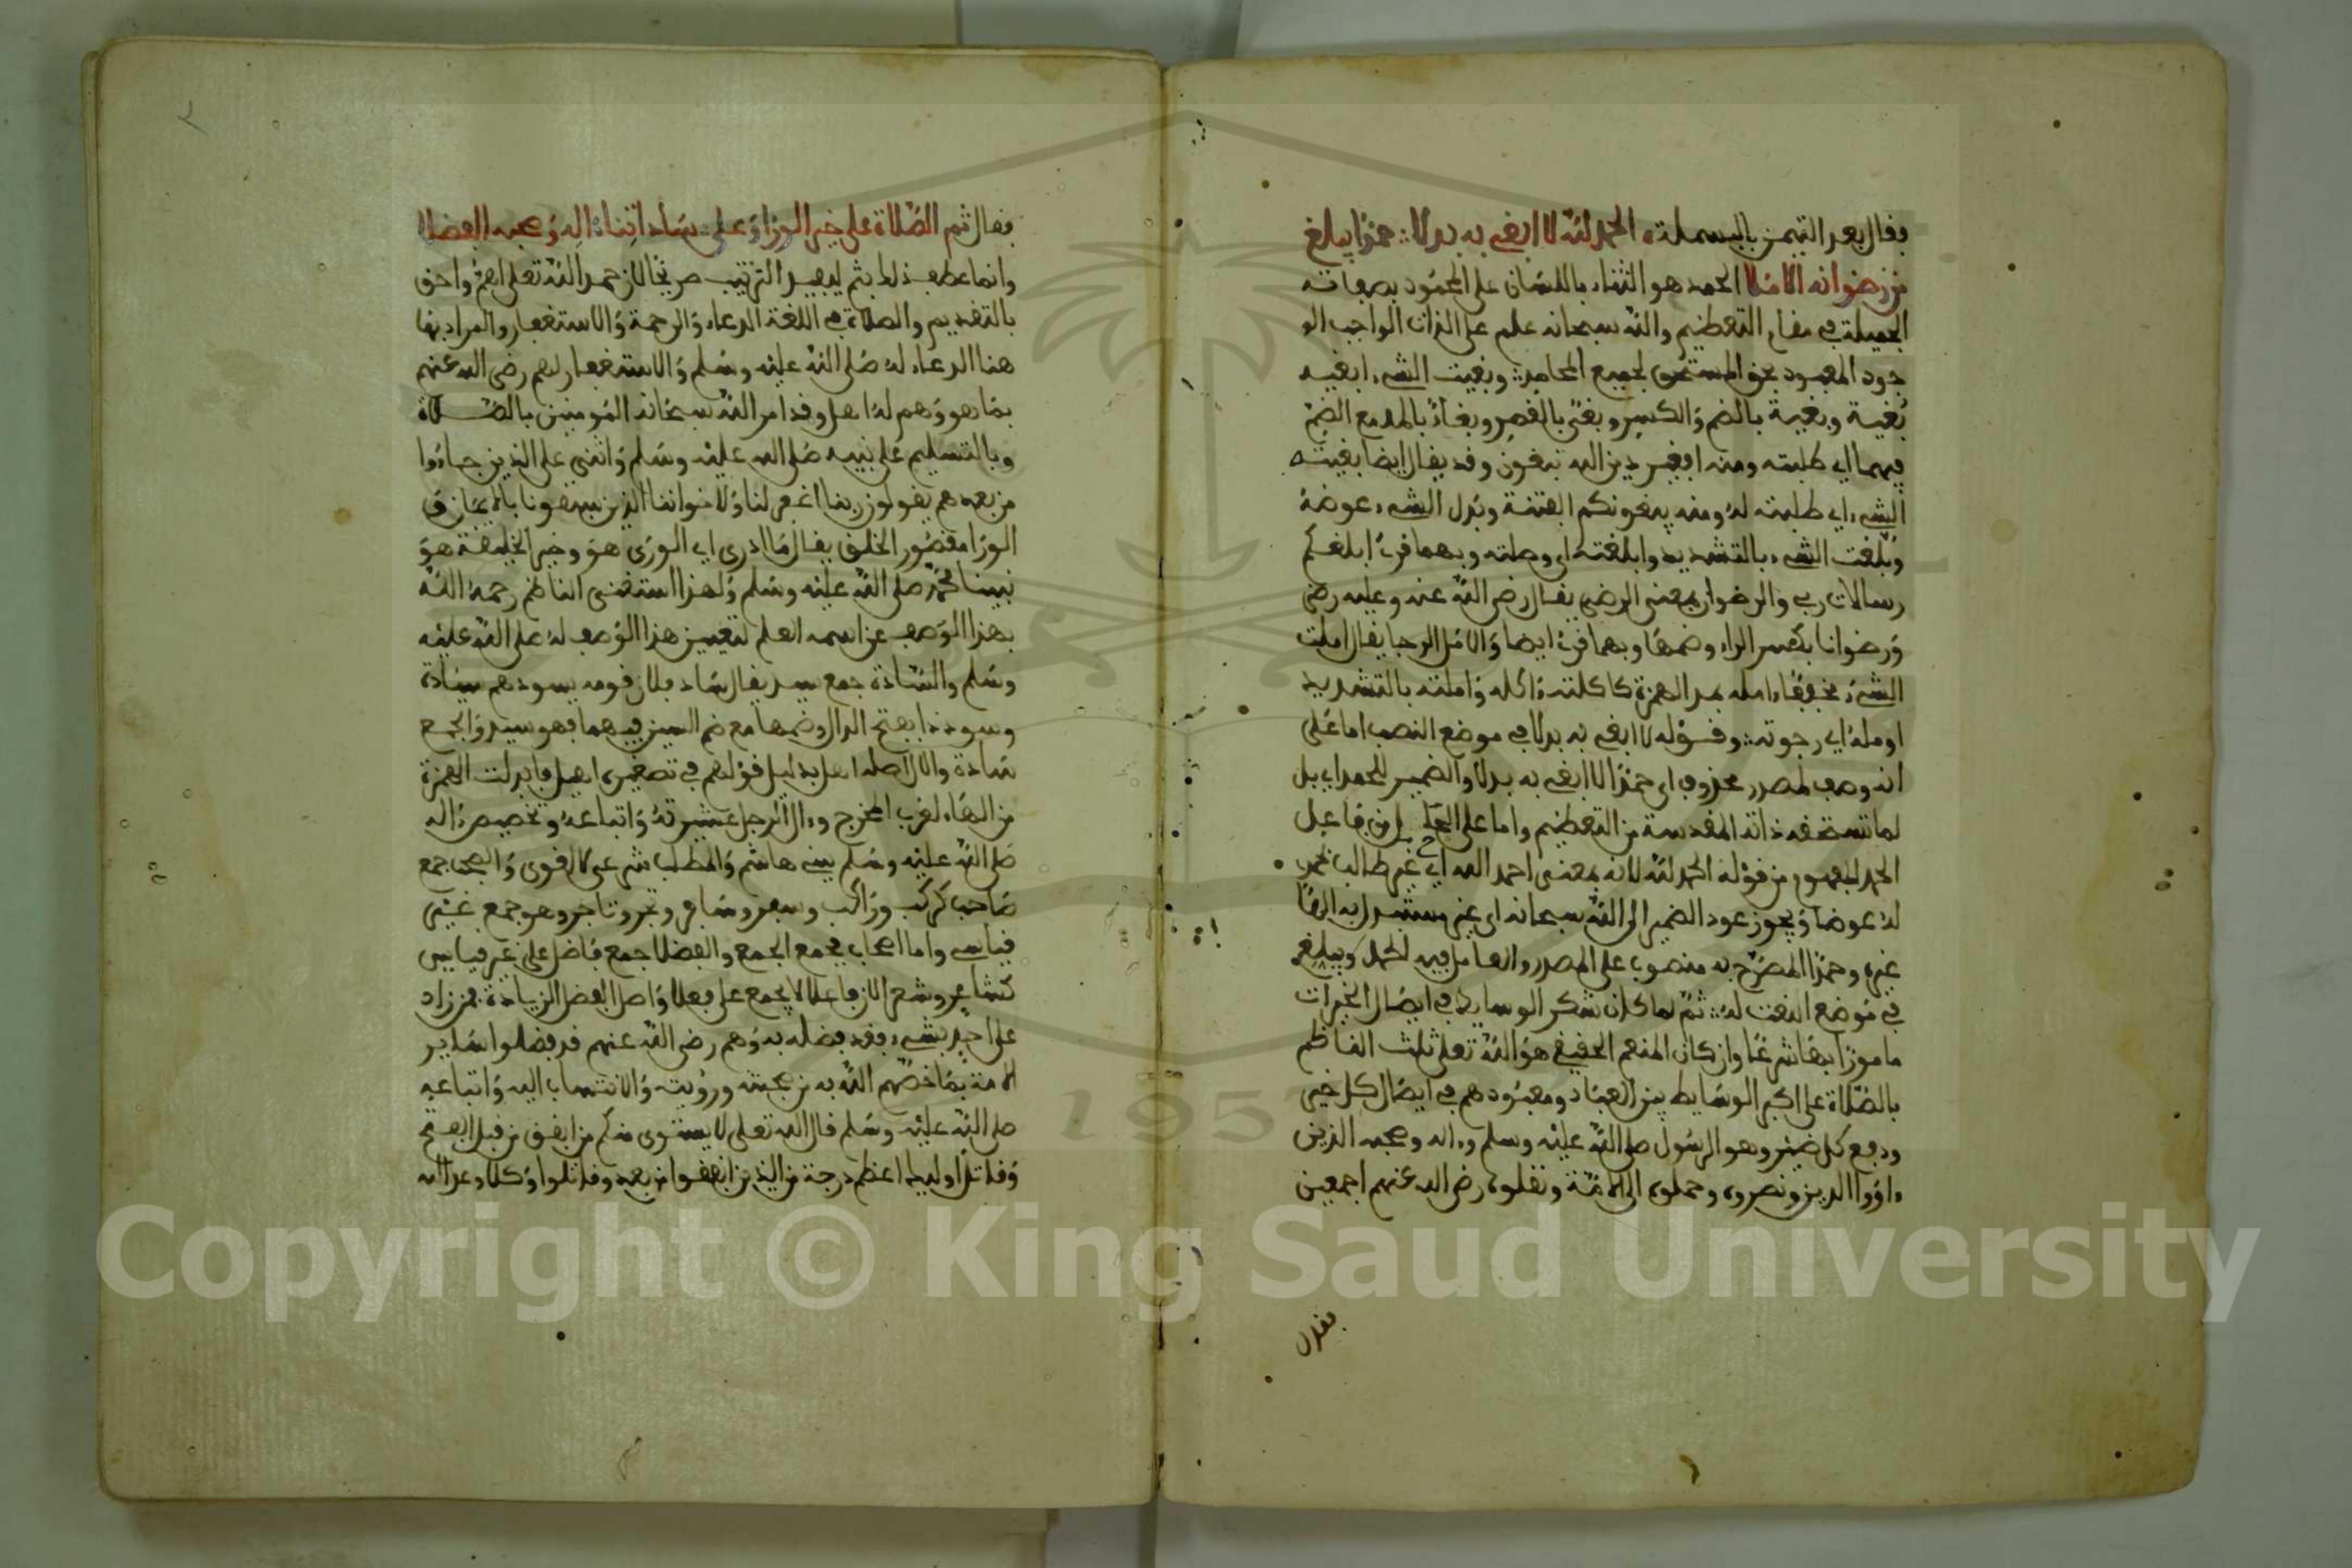 فقال بعد التيمن بالبسملة الحمد لله لا ابغي به بدلا حمدا يبلغ
من رضوانه الاملا الحمد هو الثناء باللسان على المحمود بصفاته
الجميلة في مقام التعظيم والله سبحانه علم على الذات الواجب الو
جود المعبود بحق المستحق لجميع المحامد وبغيت الشيء ابغيه
بغية وبغية بالضم والكسر وبغى بالقصر وبغاء بالمد مع الضم
فيهما اي طلبته ومنه افغير دين الله تبغون وقد يقال ايضا بغيته
الشيء اي طلبته له ومنه يبغونكم الفتنة وبدل الشيء عوضه
وبلغت الشيء بالتشديد وابلغته اي وصلته وبهما قرئ ابلغكم
رسالات ربي والرضوان بمعنى الرضى يقال رضي الله عنه وعليه رضى
ورضوانا بكسر الراء وضمها وبهما قرئ ايضا والامل الرجا يقال املت
الشيء مخففا ءامله بمد الهمزة كاكلته ءاكله واملته بالتشديد
اومله اي رجوته وقوله لا ابغي به بدلا في موضع النصب اما على
انه وصف لمصدر محذوف اي حمدا لا ابغي به بدلا والضمير للحمد اي بل
لما تستحقه ذاته المقدسة من التعظيم واما على الحال من فاعل
الحمد المفهوم من قوله الحمد لله لانه بمعنى احمد الله اي غير طالب بحمدي
له عوضا ويجوز عود الضمير الى الله سبحانه اي غير مستبدل به الها
غيره وحمدا المصرح به منصوب على المصدر والعامل فيه الحمد ويبلغ
في موضع النعت له ثم لما كان شكر الوسايط في ايصال الخيرات
مامورا به شرعا وان كان المنعم الحقيقي هو الله تعلى ثلث الناظم
بالصلاة على اكبر الوسايط بين العباد ومعبودهم في ايصال كل خير
ودفع كل ضير وهو الرسول صلى الله عليه وسلم وءاله وصحبه الذين
ءاووا الدين ونصروه وحملوه الى الامة ونقلوه رضي الله عنهم اجمعين
فقال
٢
فقال ثم الصلاة على خير الورا وعلى ساداتنا ءاله وصحبه الفضلا
وانما عطف ذلك بثم ليفيد الترتيب صريحا لان حمد الله تعلى اهم واحق
بالتقديم والصلاة في اللغة الدعاء والرحمة والاستغفار والمراد بها
هنا الدعاء له صلى الله عليه وسلم والاستغفار لهم رضي الله عنهم
بما هو وهم له اهل وقد امر الله سبحانه المومنين بالصلاة
وبالتسليم على نبيه صلى الله عليه وسلم واثنى على الذين جاءوا
من بعدهم يقولون ربنا اغفر لنا ولاخواننا الذين سبقونا بالايمان و
الورا مقصور الخلق يقال ما ادري اي الورى هو وخير الخليقة هو
نبينا محمد صلى الله عليه وسلم ولهذا استغنى الناظم رحمه الله
بهذا الوصف عن اسمه العلم لتعيين هذا الوصف له صلى الله عليه
وسلم والسادة جمع سيد يقال ساد فلان قومه يسودهم سيادة
وسوددا بفتح الدال وضمها مع ضم السين فيهما فهو سيد والجمع
سادة والال اصله اهل بدليل قولهم في تصغيره اهيل فابدلت الهمزة
من الهاء لقرب المخرج وءال الرجل عشيرته واتباعه وتخصيص ءاله
صلى الله عليه وسلم ببني هاشم والمطلب شرعي لا لغوي والصحب جمع
صاحب كركب وراكب وسفر وسافر وتجر وتاجر وهو جمع غير
قياسي واما اصحاب فجمع الجمع والفضلا جمع فاضل على غير قياس
كشاعر وشعرا لان فاعلا لا يجمع على فعلا واصل الفضل الزيادة فمن زاد
على احد بشيء فقد فضله به وهم رضي الله عنهم قد فضلوا ساير
الامة بما خصهم الله به من صحبته ورؤيته والانتساب اليه واتباعه
صلى الله عليه وسلم قال الله تعلى لا يستوي منكم من انفق من قبل الفتح
وقاتل اوليك اعظم درجة من الذين انفقوا من بعد وقاتلوا وكلا وعد الله
1957
Copyright © King Saud University